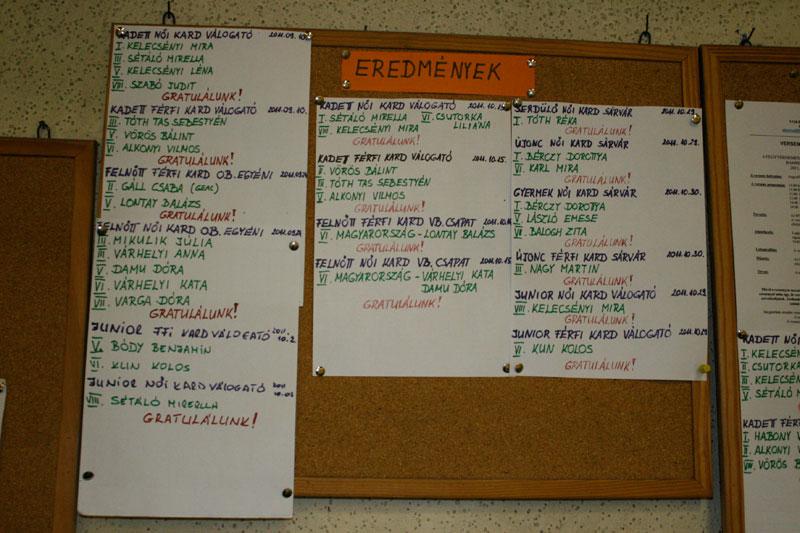 KADETT NŐI KARD VÁLOGATÓ 2011.09.10.
I. KELECSÉNYI MIRA
III. SÉTÁLÓ MIRELLA
V. KELECSÉNYI LÉNA
VIII. SZABÓ JUDIT
GRATULÁLUNK!
KADETT FÉRFI KARD VÁLOGATÓ 2011.09.10.
III. TÓTH TAS SEBESTYÉN
V. VÖRÖS BÁLINT
VI. ALKONYI VILMOS
GRATULÁLUNK!
FELNŐTT FÉRFI KARD OB. EGYÉNI
II. GÁLL CSABA (GEAC)
V. LONTAY BALÁZS
GRATULÁLUNK!
FELNŐTT NŐI KARD OB. EGYÉNI
III. MIKULIK JÚLIA
III. VÁRHELYI ANNA
V. DAMU DÓRA
VI. VÁRHELYI KATA
VII. VARGA DÓRA
GRATULÁLUNK!
JUNIOR FFI KARD VÁLOGATÓ 2011 10.2
V. BÓDY BENJAMIN
VI. KUN KOLOS
JUNIOR NŐI KARD VÁLOGATÓ 2011
VIII. SÉTÁLÓ MIRELLA
GRATULÁLUNK!
EREDMÉNYEK
KADETT NŐI KARD VÁLOGATÓ 2011.10.15.
I. SÉTÁLÓ MIRELLA VI. CSUTORKA LILIÁNA
VII. KELECSÉNYI MIRA
GRATULÁLUNK!
KADET FÉRFI KARD VÁLOGATÓ 2011.10.15.
II. VÖRÖS BÁLINT
III. TÓTH TAS SEBESTYÉN
V. ALKONYI VILMOS
GRATULÁLUNK!
FELNŐTT FÉRFI KARD VB. CSAPAT
VI. MAGYARORSZÁG - LONTAY BALÁZS
GRATULÁLUNK!
FELNŐTT NŐI KARD VB. CSAPAT
VI. MAGYARORSZÁG - VÁRHELYI KATA
DAMU DÓRA
GRATULÁLUNK!
SERDÜLŐ NŐI KARD SÁRVÁR 2011.10.29.
I. TÓTH RÉKA
GRATULÁLUNK!
ÚJONC NŐI KARD SÁRVÁR 2011.10.29.
II. BÉRCZY DOROTTYA
VI. KARL MIRA
GRATULÁLUNK!
GYERMEK NŐI KARD SÁRVÁR 2011.10.30.
I. BÉRCZY DOROTYA
V. LÁSZLÓ EMESE
VIII. BALOGH ZITA
GRATULÁLUNK!
ÚJONC FÉRFI KARD SÁRVÁR 2011.10.30.
III. NAGY MARTIN
GRATULÁLUNK!
JUNIOR NŐI KARD VÁLOGATÓ 2011.10.29
VIII. KELECSÉNYI MIRA
GRATULÁLUNK!
JUNIOR FÉRFI KARD VÁLOGATÓ 2011.10.29
VI. KUN KOLOS
GRATULÁLUNK!
KADETT NŐI
I. KELECSÉN
II. CSUTORKA
III. KELECSÉN
V. SÉTÁLÓ M
KADETT FÉR
I. HABONY V
II. ALKONYI V
VIII. VÖRÖS B